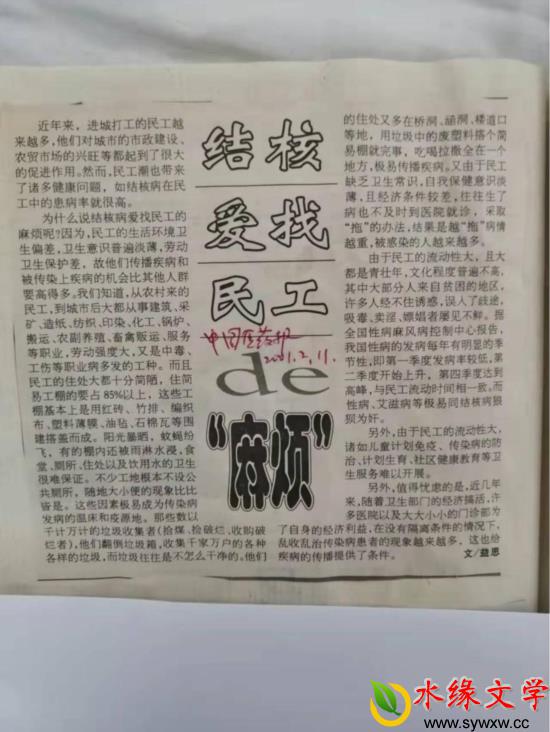 结核
爱找
民工
de
“麻烦”
中国医药报
2001.2.11.
近年来，进城打工的民工越
来越多，他们对城市的市政建设、
农贸市场的兴旺等都起到了很大
的促进作用。然而，民工潮也带来
了诸多健康问题，如结核病在民
工中的患病率就很高。
为什么说结核病爱找民工的
麻烦呢?因为，民工的生活环境卫
生偏差，卫生意识普遍淡薄，劳动
卫生保护差，故他们传播疾病和
被传染上疾病的机会比其他人群
要高得多。我们知道，从农村来的
民工，到城市后大都从事建筑、采
矿、造纸、纺织、印染、化工、锅炉、
搬运、农副养殖、畜禽贩运、服务
等职业，劳动强度大，又是中毒、
工伤等职业病多发的工种。而且
民工的住处大都十分简陋，住简
易工棚的要占85%以上，这些工
棚基本上是用红砖、竹排、编织
布、塑料薄膜、油毡、石棉瓦等围
建搭盖而成。阳光暴晒，蚊蝇纷
飞，有的棚内还被雨淋水浸，食
堂、厕所、住处以及饮用水的卫生
很难保证。不少工地根本不设公
共厕所，随地大小便的现象比比
皆是。这些因素极易成为传染病
发病的温床和疫源地。那些数以
千计万计的垃圾收集者(拾煤、捡破烂、收购破
烂者)，他们翻倒垃圾箱，收集千家万户的各种
各样的垃圾，而垃圾往往是不怎么干净的。他们
的住处又多在桥洞、涵洞、楼道口
等地，用垃圾中的废塑料搭个简
易棚就完事，吃喝拉撒全在一个
地方，极易传播疾病。又由于民工
缺乏卫生常识，自我保健意识淡
薄，且经济条件较差，往往生了
病也不及时到医院就诊，采取
“拖”的办法，结果是越“拖”病情
越重，被感染的人越来越多。
由于民工的流动性大，且大
都是青壮年，文化程度普遍不高，
其中大部分人来自贫困的地区，
许多人经不住诱惑，误入了歧途，
吸毒、卖淫、嫖娼者屡见不鲜。据
全国性病麻风病控制中心报告，
我国性病的发病每年有明显的季
节性，即第一季度发病率较低，第
二季度开始上升，第四季度达到
高峰，与民工流动时间相一致。而
性病、艾滋病等极易同结核病狼
狈为奸。
另外，由于民工的流动性大，
诸如儿童计划免疫、传染病的防
治、计划生育、社区健康教育等卫
生服务难以开展。
另外，值得忧虑的是，近几年
来，随着卫生部门的经济搞活，许
多医院以及大大小小的门诊部为
了自身的经济利益，在没有隔离条件的情况下，
乱收乱治传染病患者的现象越来越多，这也给
疾病的传播提供了条件。
文/益思
水缘文学
www.sywxw.cc